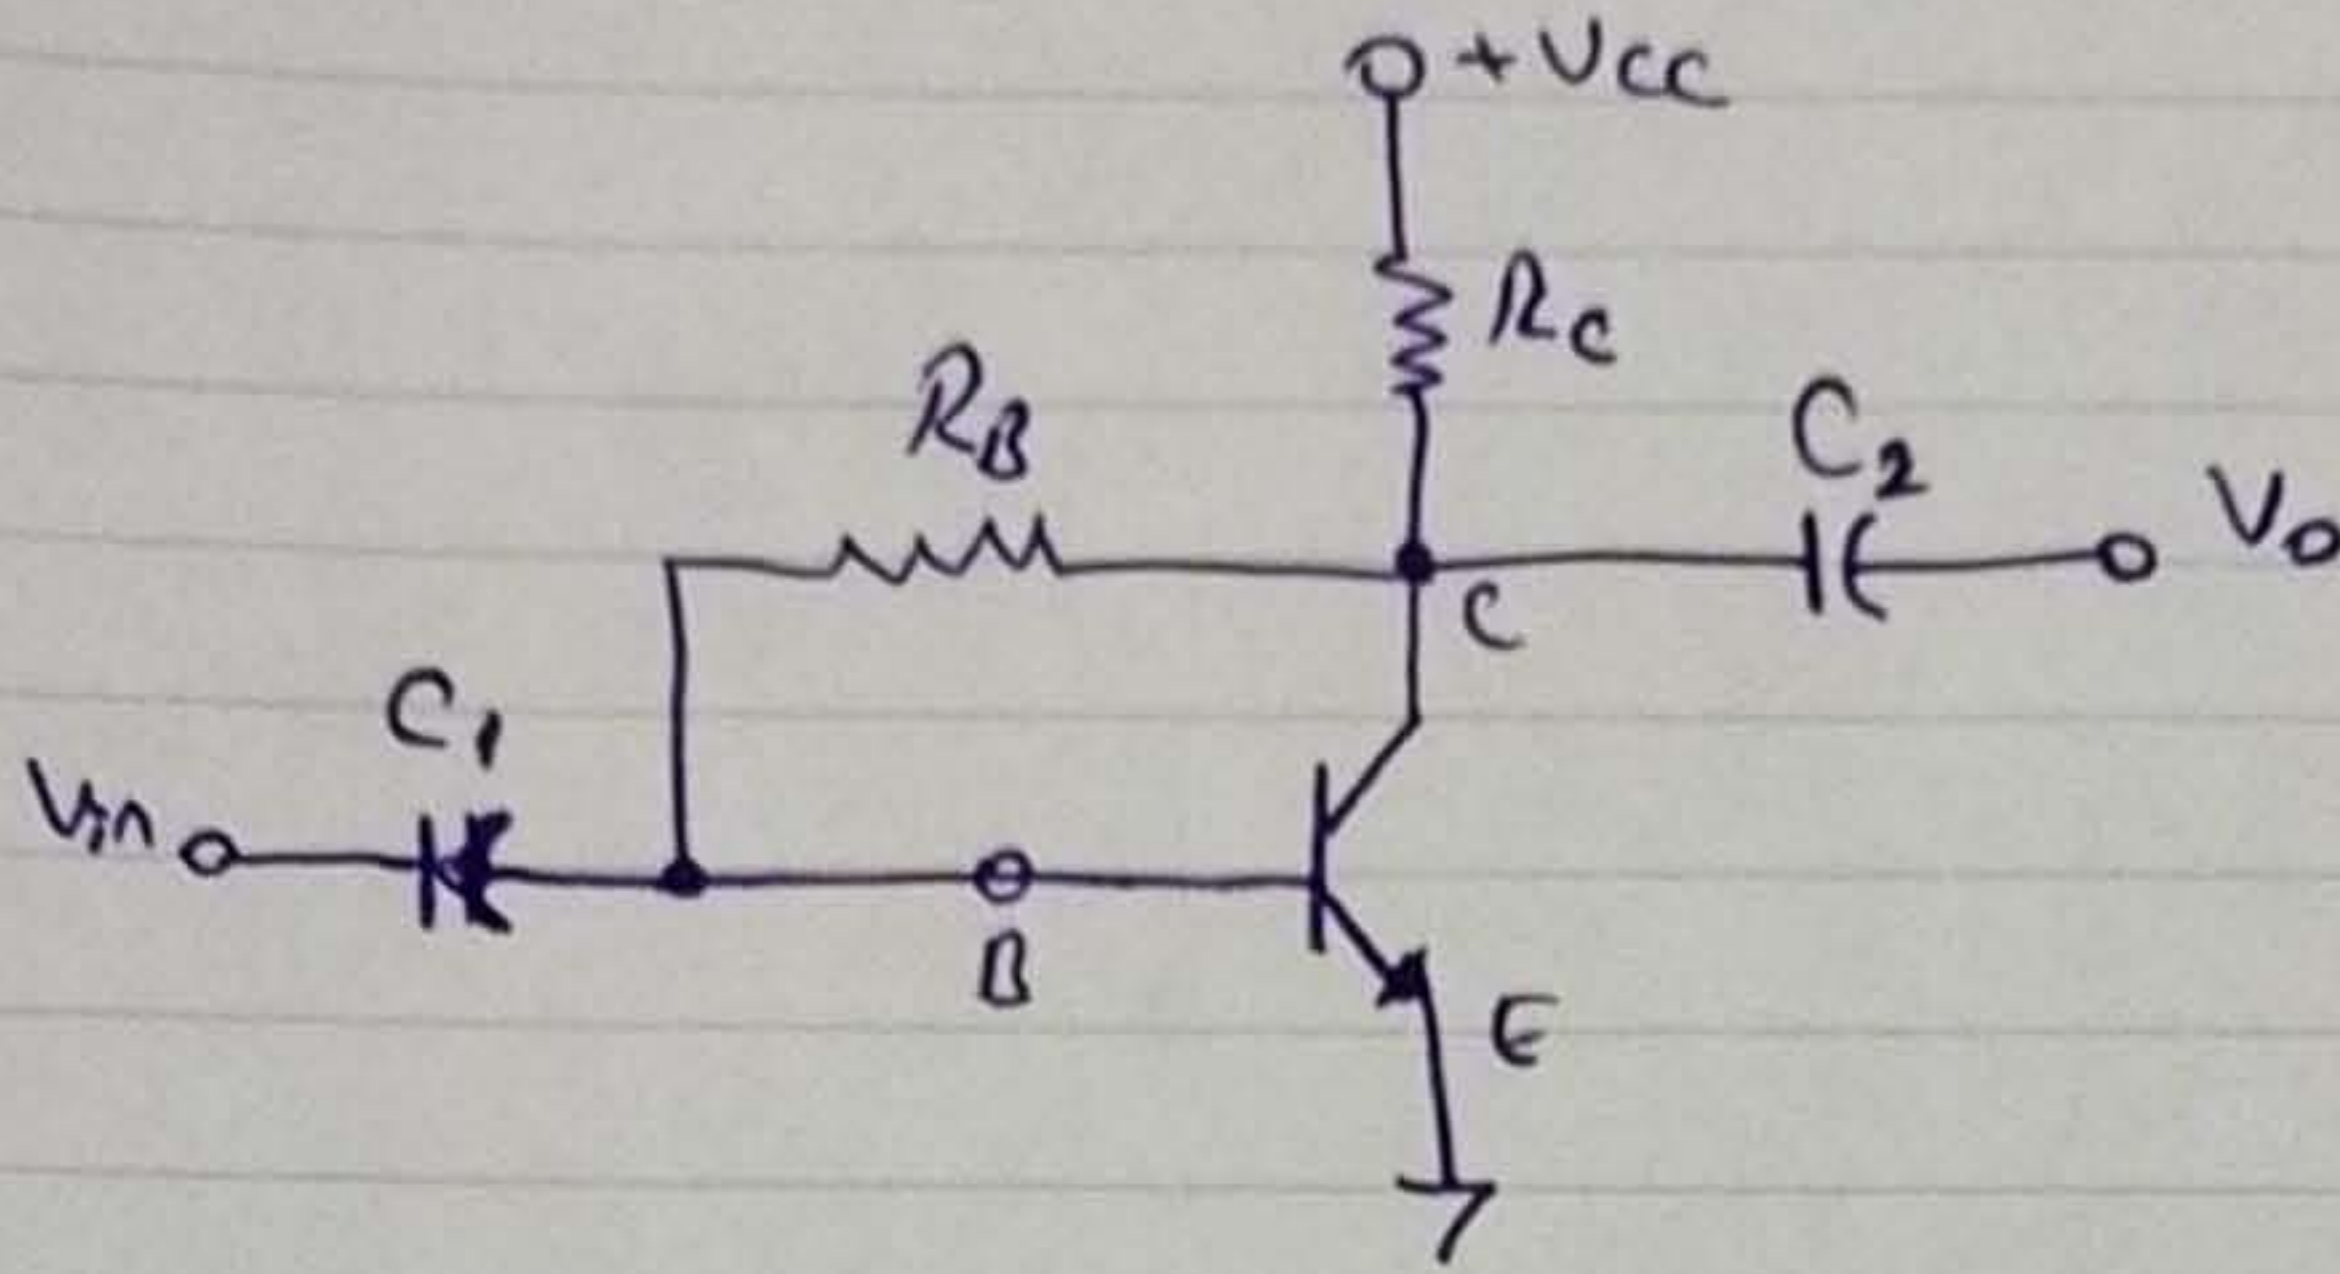 +Vcc
Rc
RB
C2
Vo
C
C1
Vin
B
E